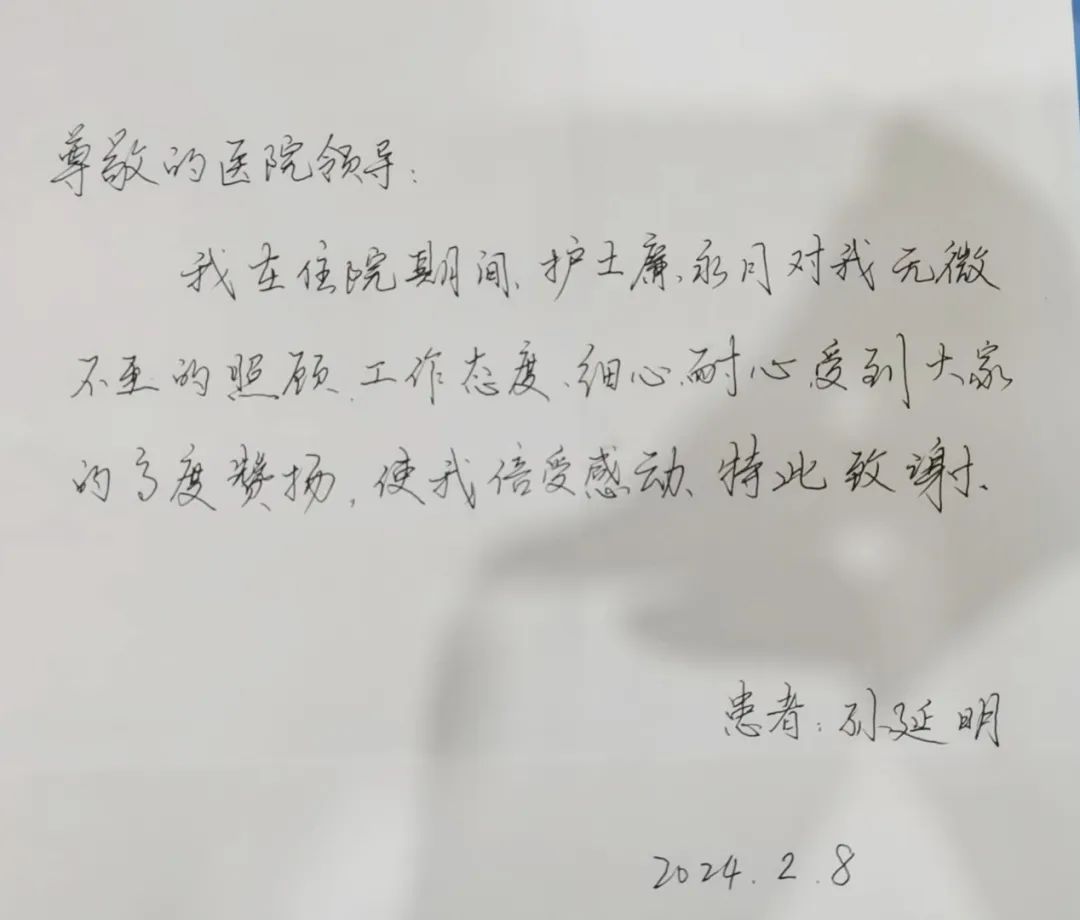 尊敬的医院领导:
我在住院期间、护士廉永月对我无微
不至的照顾、工作态度、细心、耐心、受到大家
的高度赞扬,使我倍受感动、特此致谢、
患者:孙延明
2024.2.8